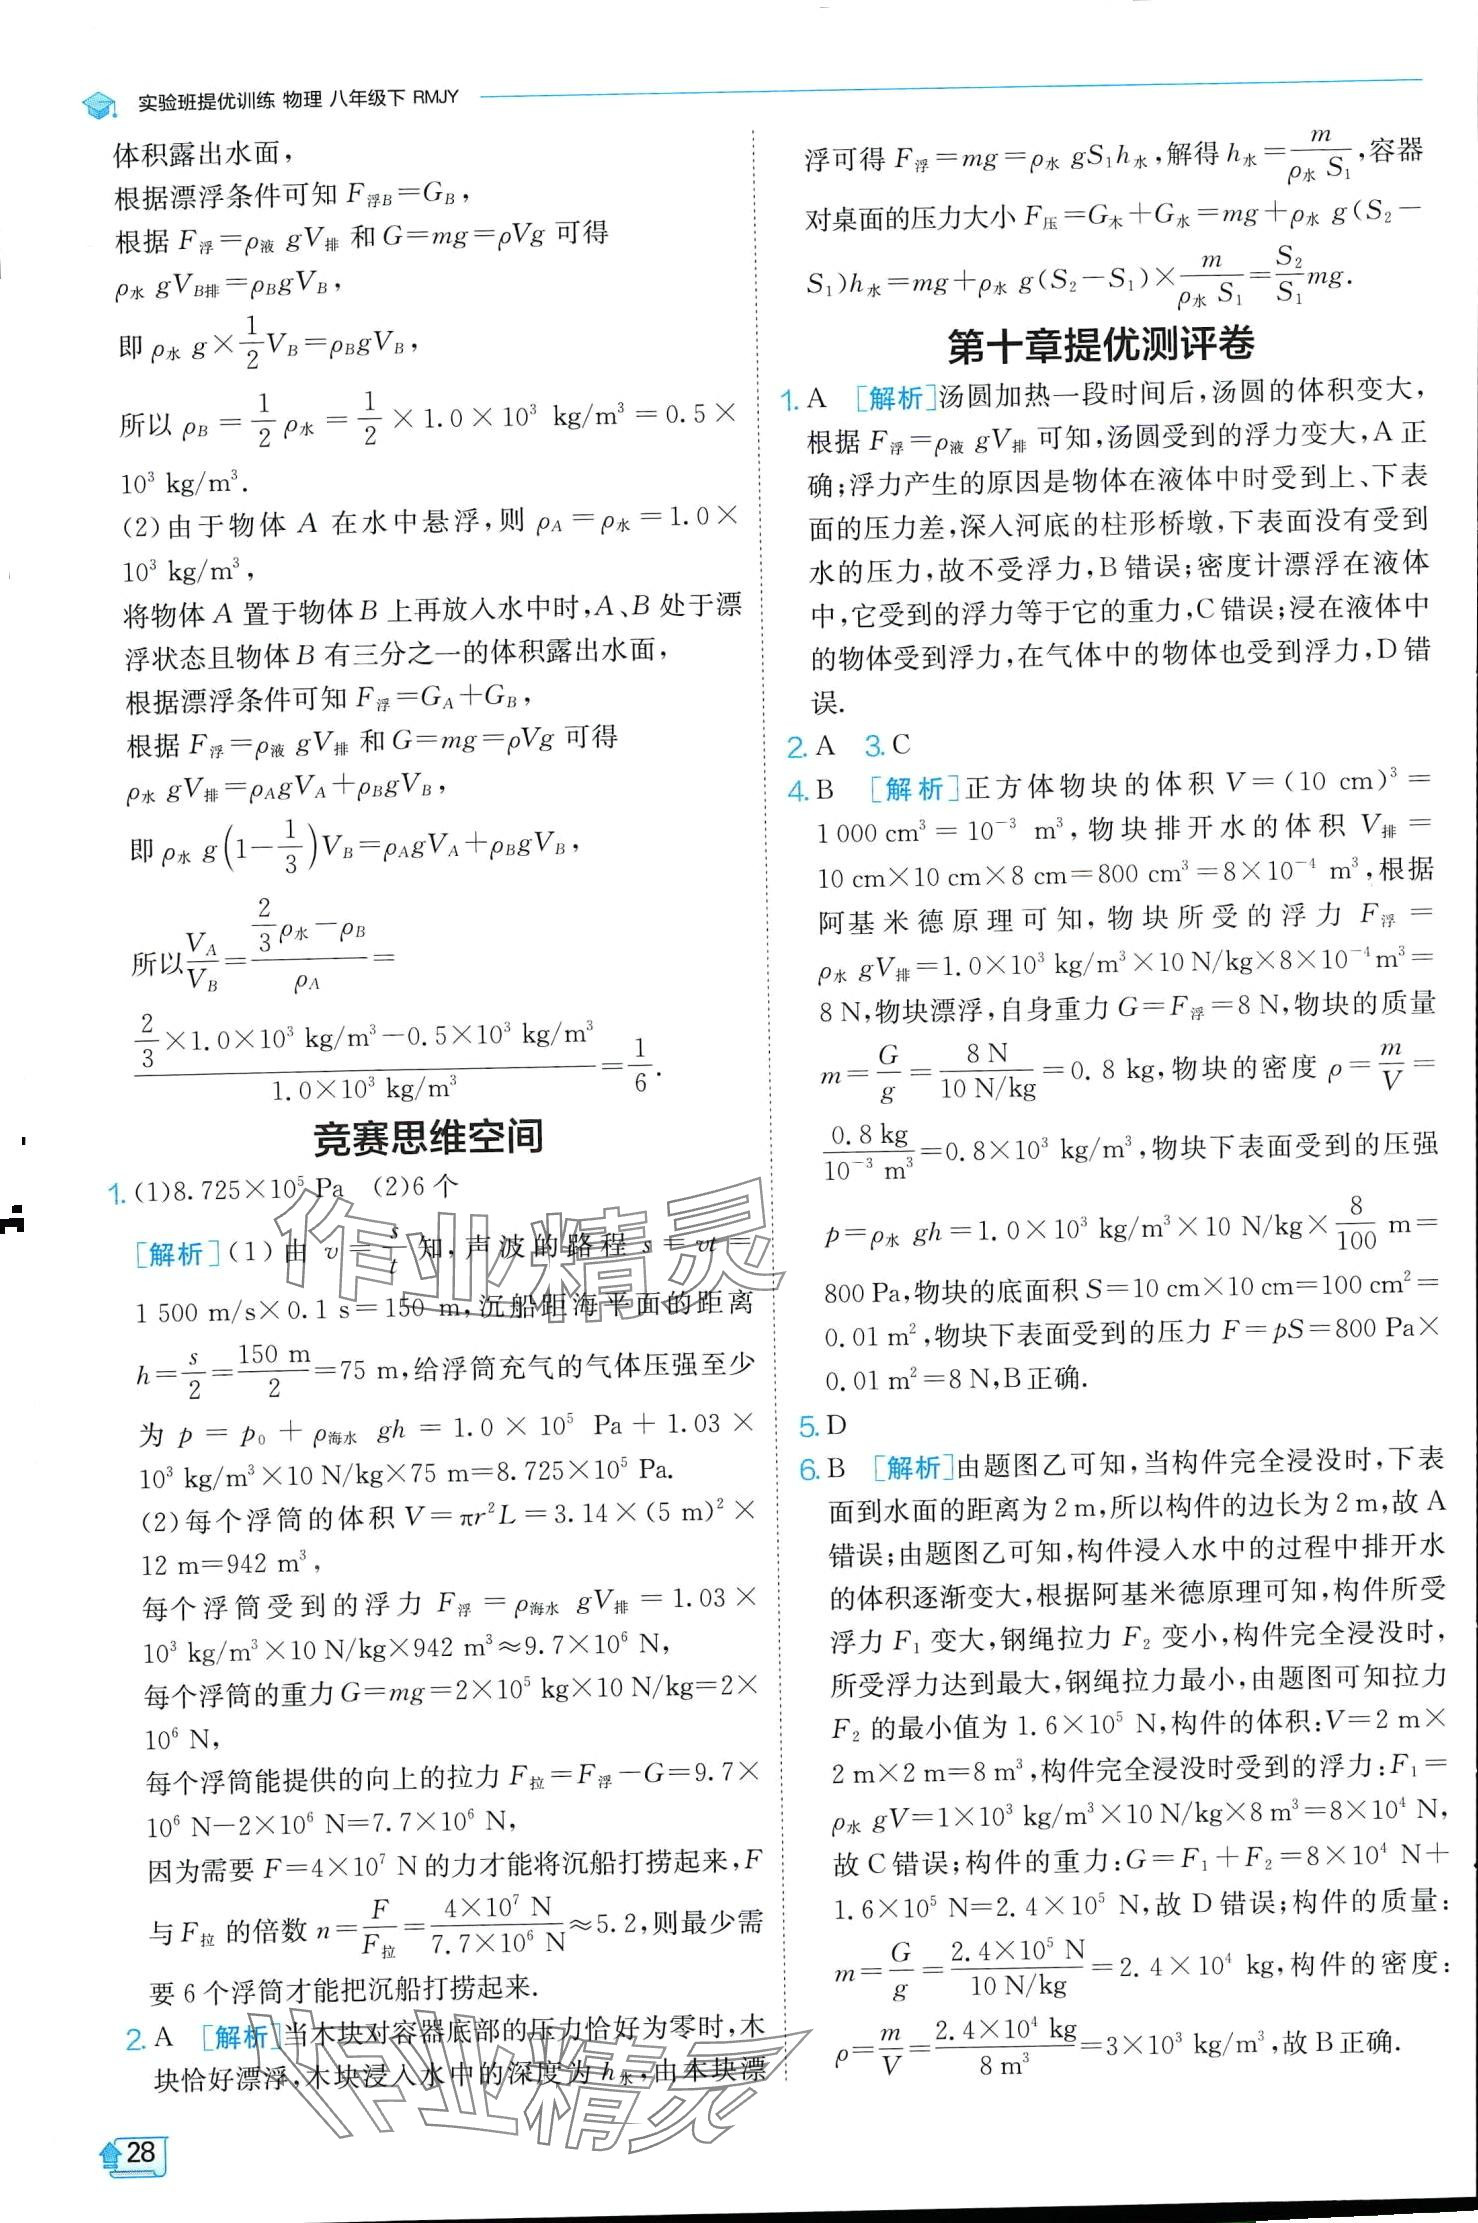 实验班提优训练 物理 八年级下 RMJY
体积露出水面，
根据漂浮条件可知 F浮B=GB，
根据 F浮=ρ液 gV排 和 G=mg=ρVg 可得
ρ水 gVB排=ρBgVB，
即 ρ水 g×1/2VB=ρBgVB，
所以 ρB=1/2ρ水=1/2×1.0×10³ kg/m³=0.5×
10³ kg/m³.
(2)由于物体 A 在水中悬浮,则 ρA=ρ水=1.0×
10³ kg/m³，
将物体 A 置于物体 B 上再放入水中时,A、B 处于漂
浮状态且物体 B 有三分之一的体积露出水面，
根据漂浮条件可知 F浮=GA+GB，
根据 F浮=ρ液 gV排 和 G=mg=ρVg 可得
ρ水 gV排=ρAgVA+ρBgVB，
即 ρ水 g(1-1/3)VB=ρAgVA+ρBgVB，
所以VA/VB=(2/3ρ水-ρB)/ρA=
(2/3×1.0×10³ kg/m³-0.5×10³ kg/m³)/(1.0×10³ kg/m³)=1/6.
竞赛思维空间
1. (1)8.725×10⁵ Pa (2)6 个
[解析](1)由 v=s/t 知,声波的路程 s=vt=
1 500 m/s×0.1 s=150 m,沉船距海平面的距离
h=s/2=150 m/2=75 m,给浮筒充气的气体压强至少
为 p=p₀+ρ海水 gh=1.0×10⁵ Pa+1.03×
10³ kg/m³×10 N/kg×75 m=8.725×10⁵ Pa.
(2)每个浮筒的体积 V=πr²L=3.14×(5 m)²×
12 m=942 m³，
每个浮筒受到的浮力 F浮=ρ海水 gV排=1.03×
10³ kg/m³×10 N/kg×942 m³≈9.7×10⁶ N，
每个浮筒的重力 G=mg=2×10⁵ kg×10 N/kg=2×
10⁶ N，
每个浮筒能提供的向上的拉力 F拉=F浮-G=9.7×
10⁶ N-2×10⁶ N=7.7×10⁶ N，
因为需要 F=4×10⁷ N的力才能将沉船打捞起来,F
与 F拉 的倍数 n=F/F拉=4×10⁷ N/7.7×10⁶ N≈5.2,则最少需
要 6 个浮筒才能把沉船打捞起来.
2. A [解析]当木块对容器底部的压力恰好为零时,木
块恰好漂浮,木块浸入水中的深度为 h水,由木块漂
28
浮可得 F浮=mg=ρ水 gS₁h水,解得 h水=m/ρ水 S₁,容器
对桌面的压力大小 F压=G木+G水=mg+ρ水 g(S₂-
S₁)h水=mg+ρ水 g(S₂-S₁)×m/ρ水 S₁=S₂/S₁mg.
第十章提优测评卷
1. A [解析]汤圆加热一段时间后,汤圆的体积变大,
根据 F浮=ρ液 gV排 可知,汤圆受到的浮力变大,A 正
确;浮力产生的原因是物体在液体中时受到上、下表
面的压力差,深入河底的柱形桥墩,下表面没有受到
水的压力,故不受浮力,B 错误;密度计漂浮在液体
中,它受到的浮力等于它的重力,C 错误;浸在液体中
的物体受到浮力,在气体中的物体也受到浮力,D 错
误.
2. A 3. C
4. B [解析]正方体物块的体积 V=(10 cm)³=
1 000 cm³=10⁻³ m³,物块排开水的体积 V排=
10 cm×10 cm×8 cm=800 cm³=8×10⁻⁴ m³,根据
阿基米德原理可知,物块所受的浮力 F浮=
ρ水 gV排=1.0×10³ kg/m³×10 N/kg×8×10⁻⁴m³=
8 N,物块漂浮,自身重力 G=F浮=8 N,物块的质量
m=G/g=8 N/10 N/kg=0.8 kg,物块的密度 ρ=m/V=
0.8 kg/10⁻³ m³=0.8×10³ kg/m³,物块下表面受到的压强
p=ρ水 gh=1.0×10³ kg/m³×10 N/kg×8/100 m=
800 Pa,物块的底面积 S=10 cm×10 cm=100 cm²=
0.01 m²,物块下表面受到的压力 F=pS=800 Pa×
0.01 m²=8 N,B 正确.
5. D
6. B [解析]由题图乙可知,当构件完全浸没时,下表
面到水面的距离为 2 m,所以构件的边长为 2 m,故 A
错误;由题图乙可知,构件浸入水中的过程中排开水
的体积逐渐变大,根据阿基米德原理可知,构件所受
浮力 F₁ 变大,钢绳拉力 F₂ 变小,构件完全浸没时,
所受浮力达到最大,钢绳拉力最小,由题图可知拉力
F₂ 的最小值为 1.6×10⁵ N,构件的体积:V=2 m×
2 m×2 m=8 m³,构件完全浸没时受到的浮力:F₁=
ρ水 gV=1×10³ kg/m³×10 N/kg×8 m³=8×10⁴ N,
故 C 错误;构件的重力:G=F₁+F₂=8×10⁴ N+
1.6×10⁵ N=2.4×10⁵ N,故 D 错误;构件的质量:
m=G/g=2.4×10⁵ N/10 N/kg=2.4×10⁴ kg,构件的密度:
ρ=m/V=2.4×10⁴ kg/8 m³=3×10³ kg/m³,故 B 正确.
作业精灵
作业精灵